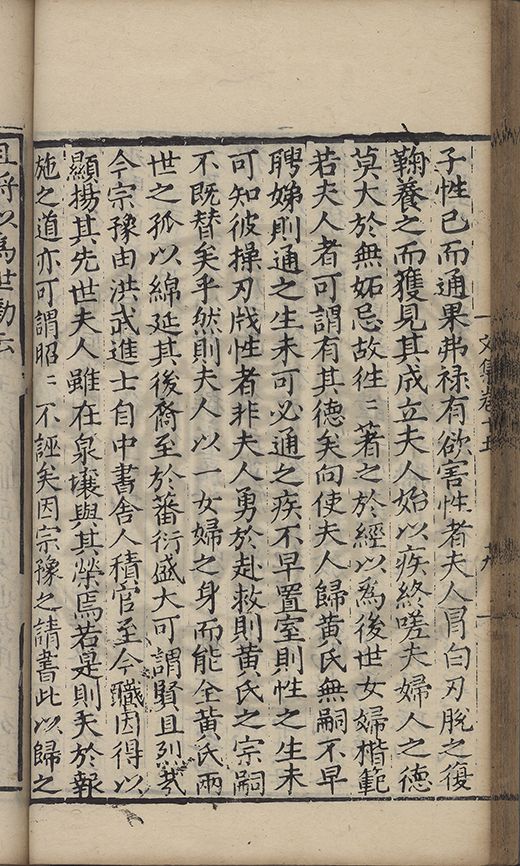 文集卷十五 十九
子性已而通果弗禄有欲害性者夫人冒白刃脫之復
鞠養之而獲見其成立夫人始以疾終嗟夫婦人之德
莫大於無妬忌故徃〻著之於經以爲後世女婦楷範
若夫人者可謂有其德矣向使夫人歸黄氏無嗣不早
聘娣則通之生未可必通之疾不早置室則性之生未
可知彼操刃戕性者非夫人勇於赴救則黄氏之宗嗣
不既替矣乎然則夫人以一女婦之身而能全黄氏兩
世之孤以綿延其後裔至於蕃衍盛大可謂賢且烈矣
今宗豫由洪武進士自中書舍人積官至今職因得以
顯揚其先世夫人雖在泉壤與其榮焉若是則天於報
施之道亦可謂昭〻不誣矣因宗豫之請書此以歸之
且將以爲世勸云